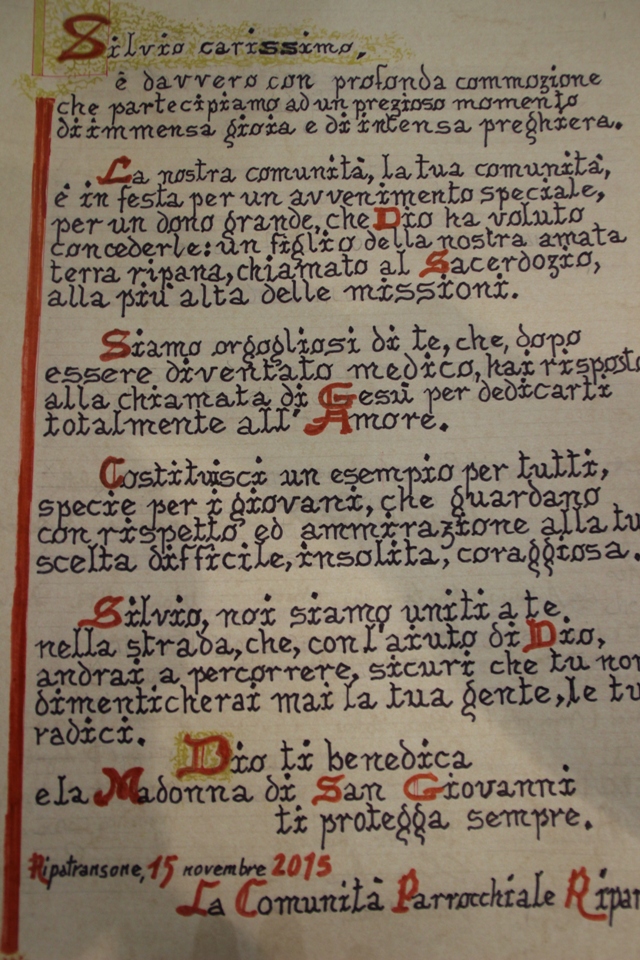 Silvio carissimo,
è davvero con profonda commozione
che partecipiamo ad un prezioso momento
di immensa gioia e di intensa preghiera.
La nostra comunità, la tua comunità,
è in festa per un avvenimento speciale,
per un dono grande, che Dio ha voluto
concederle: un figlio della nostra amata
terra ripana, chiamato al Sacerdozio,
alla più alta delle missioni.
Siamo orgogliosi di te, che, dopo
essere diventato medico, hai risposto
alla chiamata di Gesù per dedicarti
totalmente all'Amore.
Costituisci un esempio per tutti,
specie per i giovani, che guardano
con rispetto ed ammirazione alla tu
scelta difficile, insolita, coraggiosa.
Silvio, noi siamo uniti a te
nella strada, che, con l'aiuto di Dio,
andrai a percorrere, sicuri che tu non
dimenticherai mai la tua gente, le tu
radici.
Dio ti benedica
e la Madonna di San Giovanni
ti protegga sempre.
Ripatransone, 15 novembre 2015
La Comunità Parrocchiale Ripan